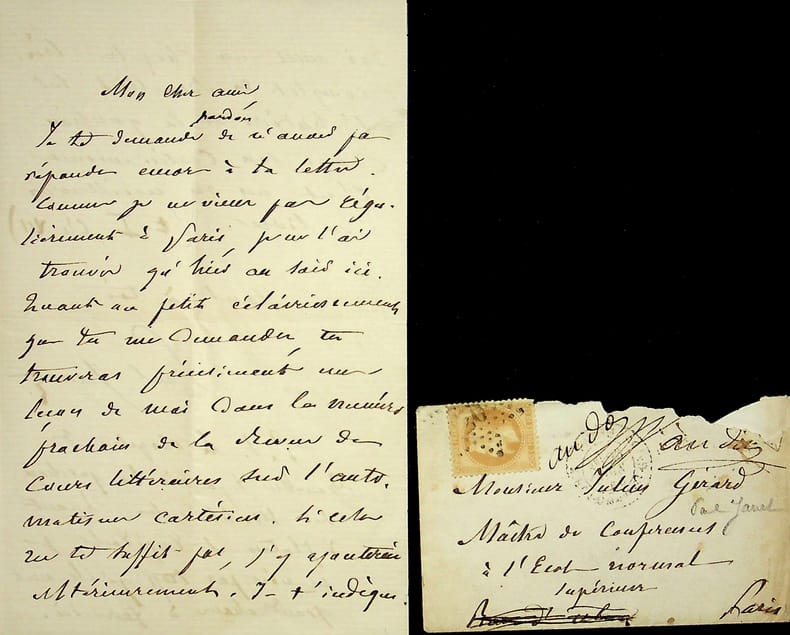 Mon cher ami
pardon
Je te demande de n'avoir pas
répondu encore à ta lettre.
Comme je ne viens pas régu-
lièrement à Paris, je ne l'ai
trouvée qu'hier au soir ici.
Quant au petit éclaircissement
que tu me demandes, tu
trouveras précisément une
leçon de moi dans le numéro
prochain de la Revue des
Cours littéraires sur l'auto-
matisme cartésien. Si cela
ne te suffit pas, j'y ajouterai
ultérieurement. Je t'indique
au dos
au dos
Monsieur Jules Gérard
Paul Janet
Maître de Conférences
à l'École normale
supérieure
Paris